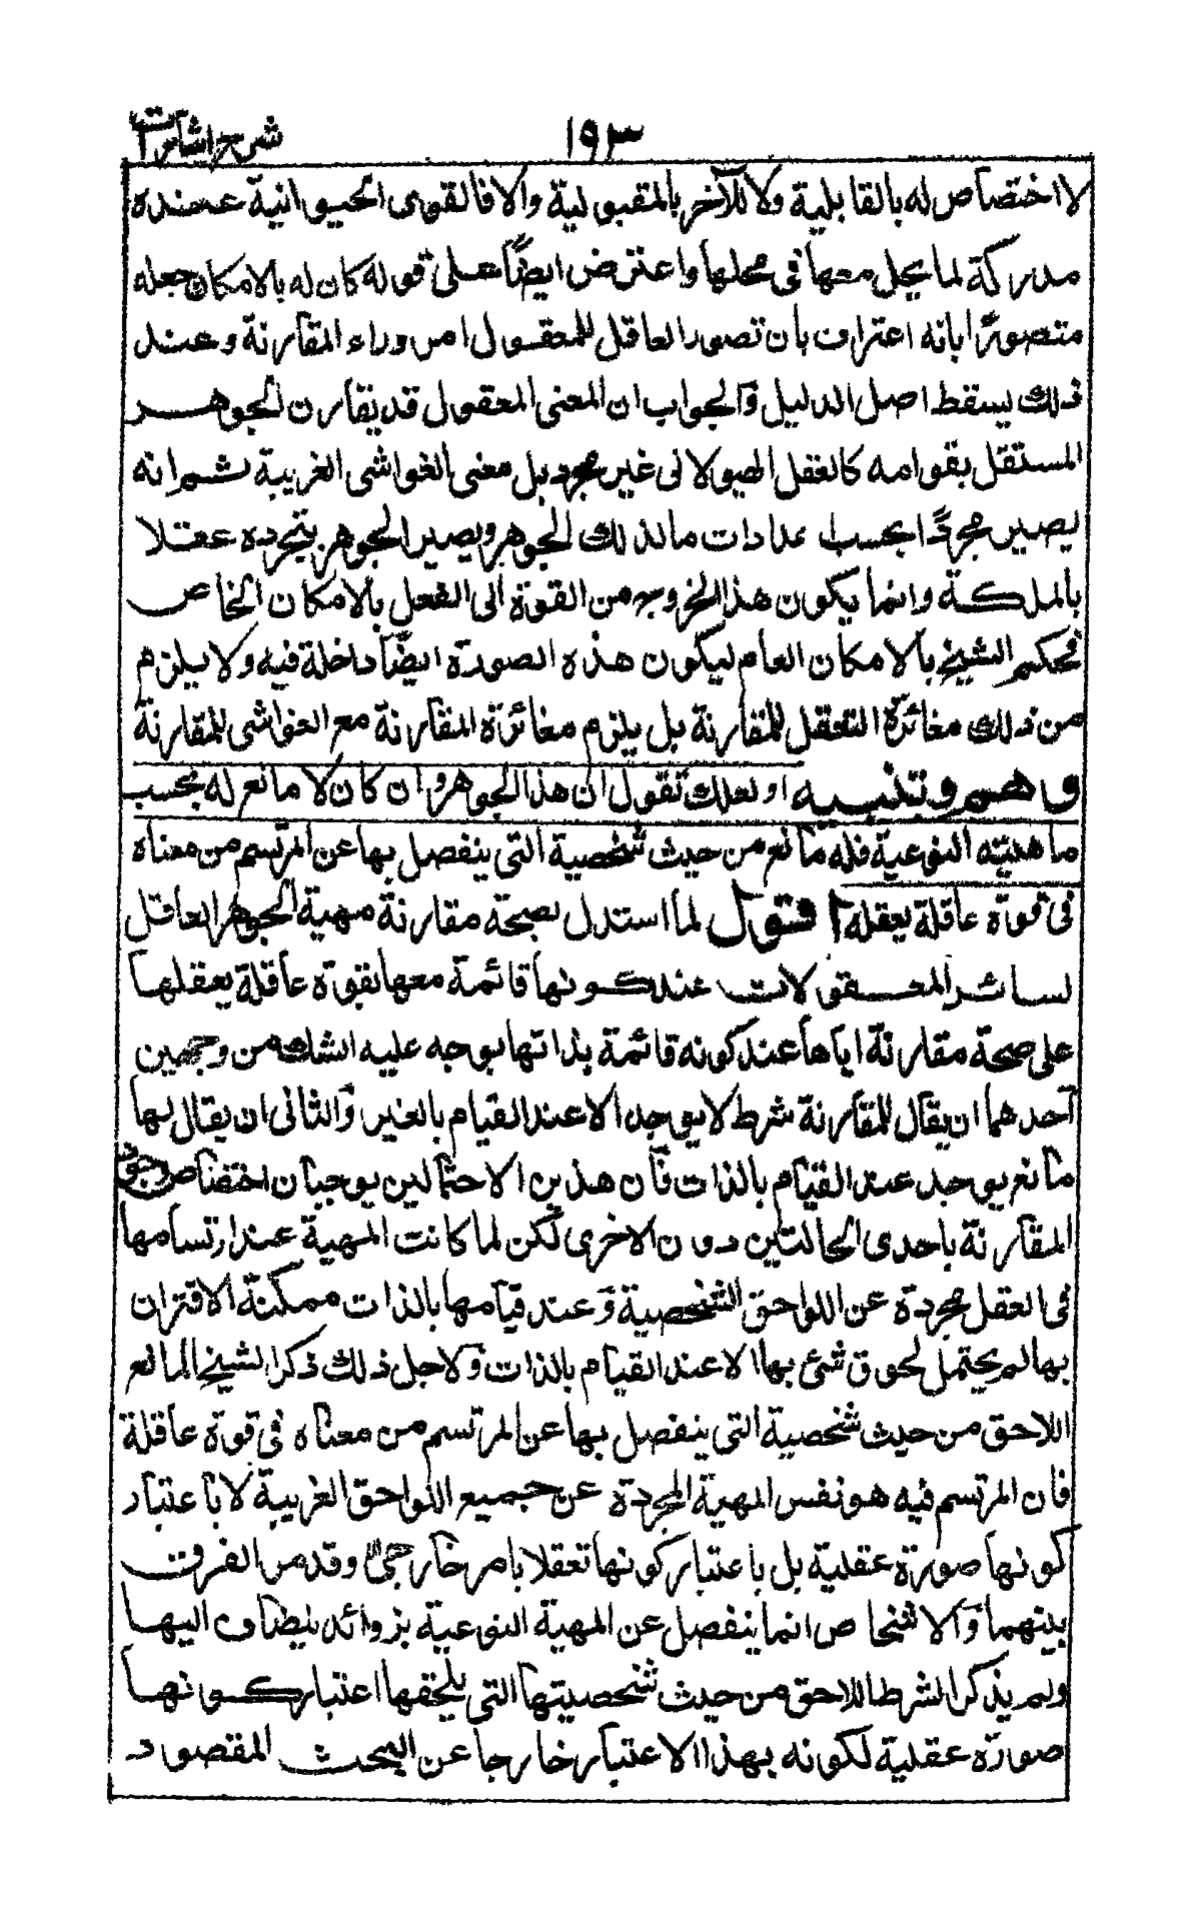 ١٩٣
شرح اشارات
لا اختصاص له بالقابلية ولا للآخر بالمقبولية والا فالقوى الحيوانية عنده
مدركة لما يحل معها فى محلها واعترض ايضًا على قوله كان له بالامكان جعله
متصورًا بانه اعتراف بان تصور العاقل للمعقول امر وراء المقارنة وعند
ذلك يسقط اصل الدليل والجواب ان المعنى المعقول قد يقارن الجوهر
المستقل بقوامه كالعقل الهيولانى غير مجرد بل معنى الغواشى الغريبة ثم انه
يصير مجردًا بحسب عادات ما لذلك الجوهر ويصير الجوهر بتجرده عقلا
بالملكة وانما يكون هذا الخروج من القوة الى الفعل بالامكان الخاص
فحكم الشيخ بالامكان العام ليكون هذه الصورة ايضًا داخلة فيه ولا يلزم
من ذلك مغائرة التعقل للمقارنة بل يلزم مغائرة المقارنة مع الغواشى للمقارنة
وهم وتنبيه او لعلك تقول ان هذا الجوهر وان كان لا مانع له بحسب
ماهيته النوعية فله مانع من حيث شخصية التى ينفصل بها عن المرتسم من معناه
فى قوة عاقلة يعقله اقول لما استدل بصحة مقارنة مهية الجوهر العاقل
لسائر المعقولات عند كونها قائمة معها بقوة عاقلة يعقلها
على صحة مقارنة اياها عند كونه قائمة بذاتها يوجه عليه الشك من وجهين
احدهما ان يقال للمقارنة شرط لا يوجد الا عند القيام بالغير والثانى ان يقال لها
مانع يوجد عند القيام بالذات فان هذين الاحتمالين يوجبان اختصاص وجوب
المقارنة باحدى الحالتين دون الاخرى لكن لما كانت المهية عند ارتسامها
فى العقل مجردة عن اللواحق الشخصية وعند قيامها بالذات ممكنة الاقتران
بها لم يحتمل لحوق شئ بها الا عند القيام بالذات ولاجل ذلك ذكر الشيخ المانع
اللاحق من حيث شخصية التى ينفصل بها عن المرتسم من معناه فى قوة عاقلة
فان المرتسم فيه هو نفس المهية المجردة عن جميع اللواحق الغريبة لا باعتبار
كونها صورة عقلية بل باعتبار كونها تعقلا بامر خارجى وقد مر الفرق
بينهما والاشخاص انما ينفصل عن المهية النوعية بزوائد يضاف اليها
ولم يذكر الشرط اللاحق من حيث شخصيتها التى يلحقها اعتبار كونها
صورة عقلية لكونه بهذا الاعتبار خارجا عن البحث المقصود